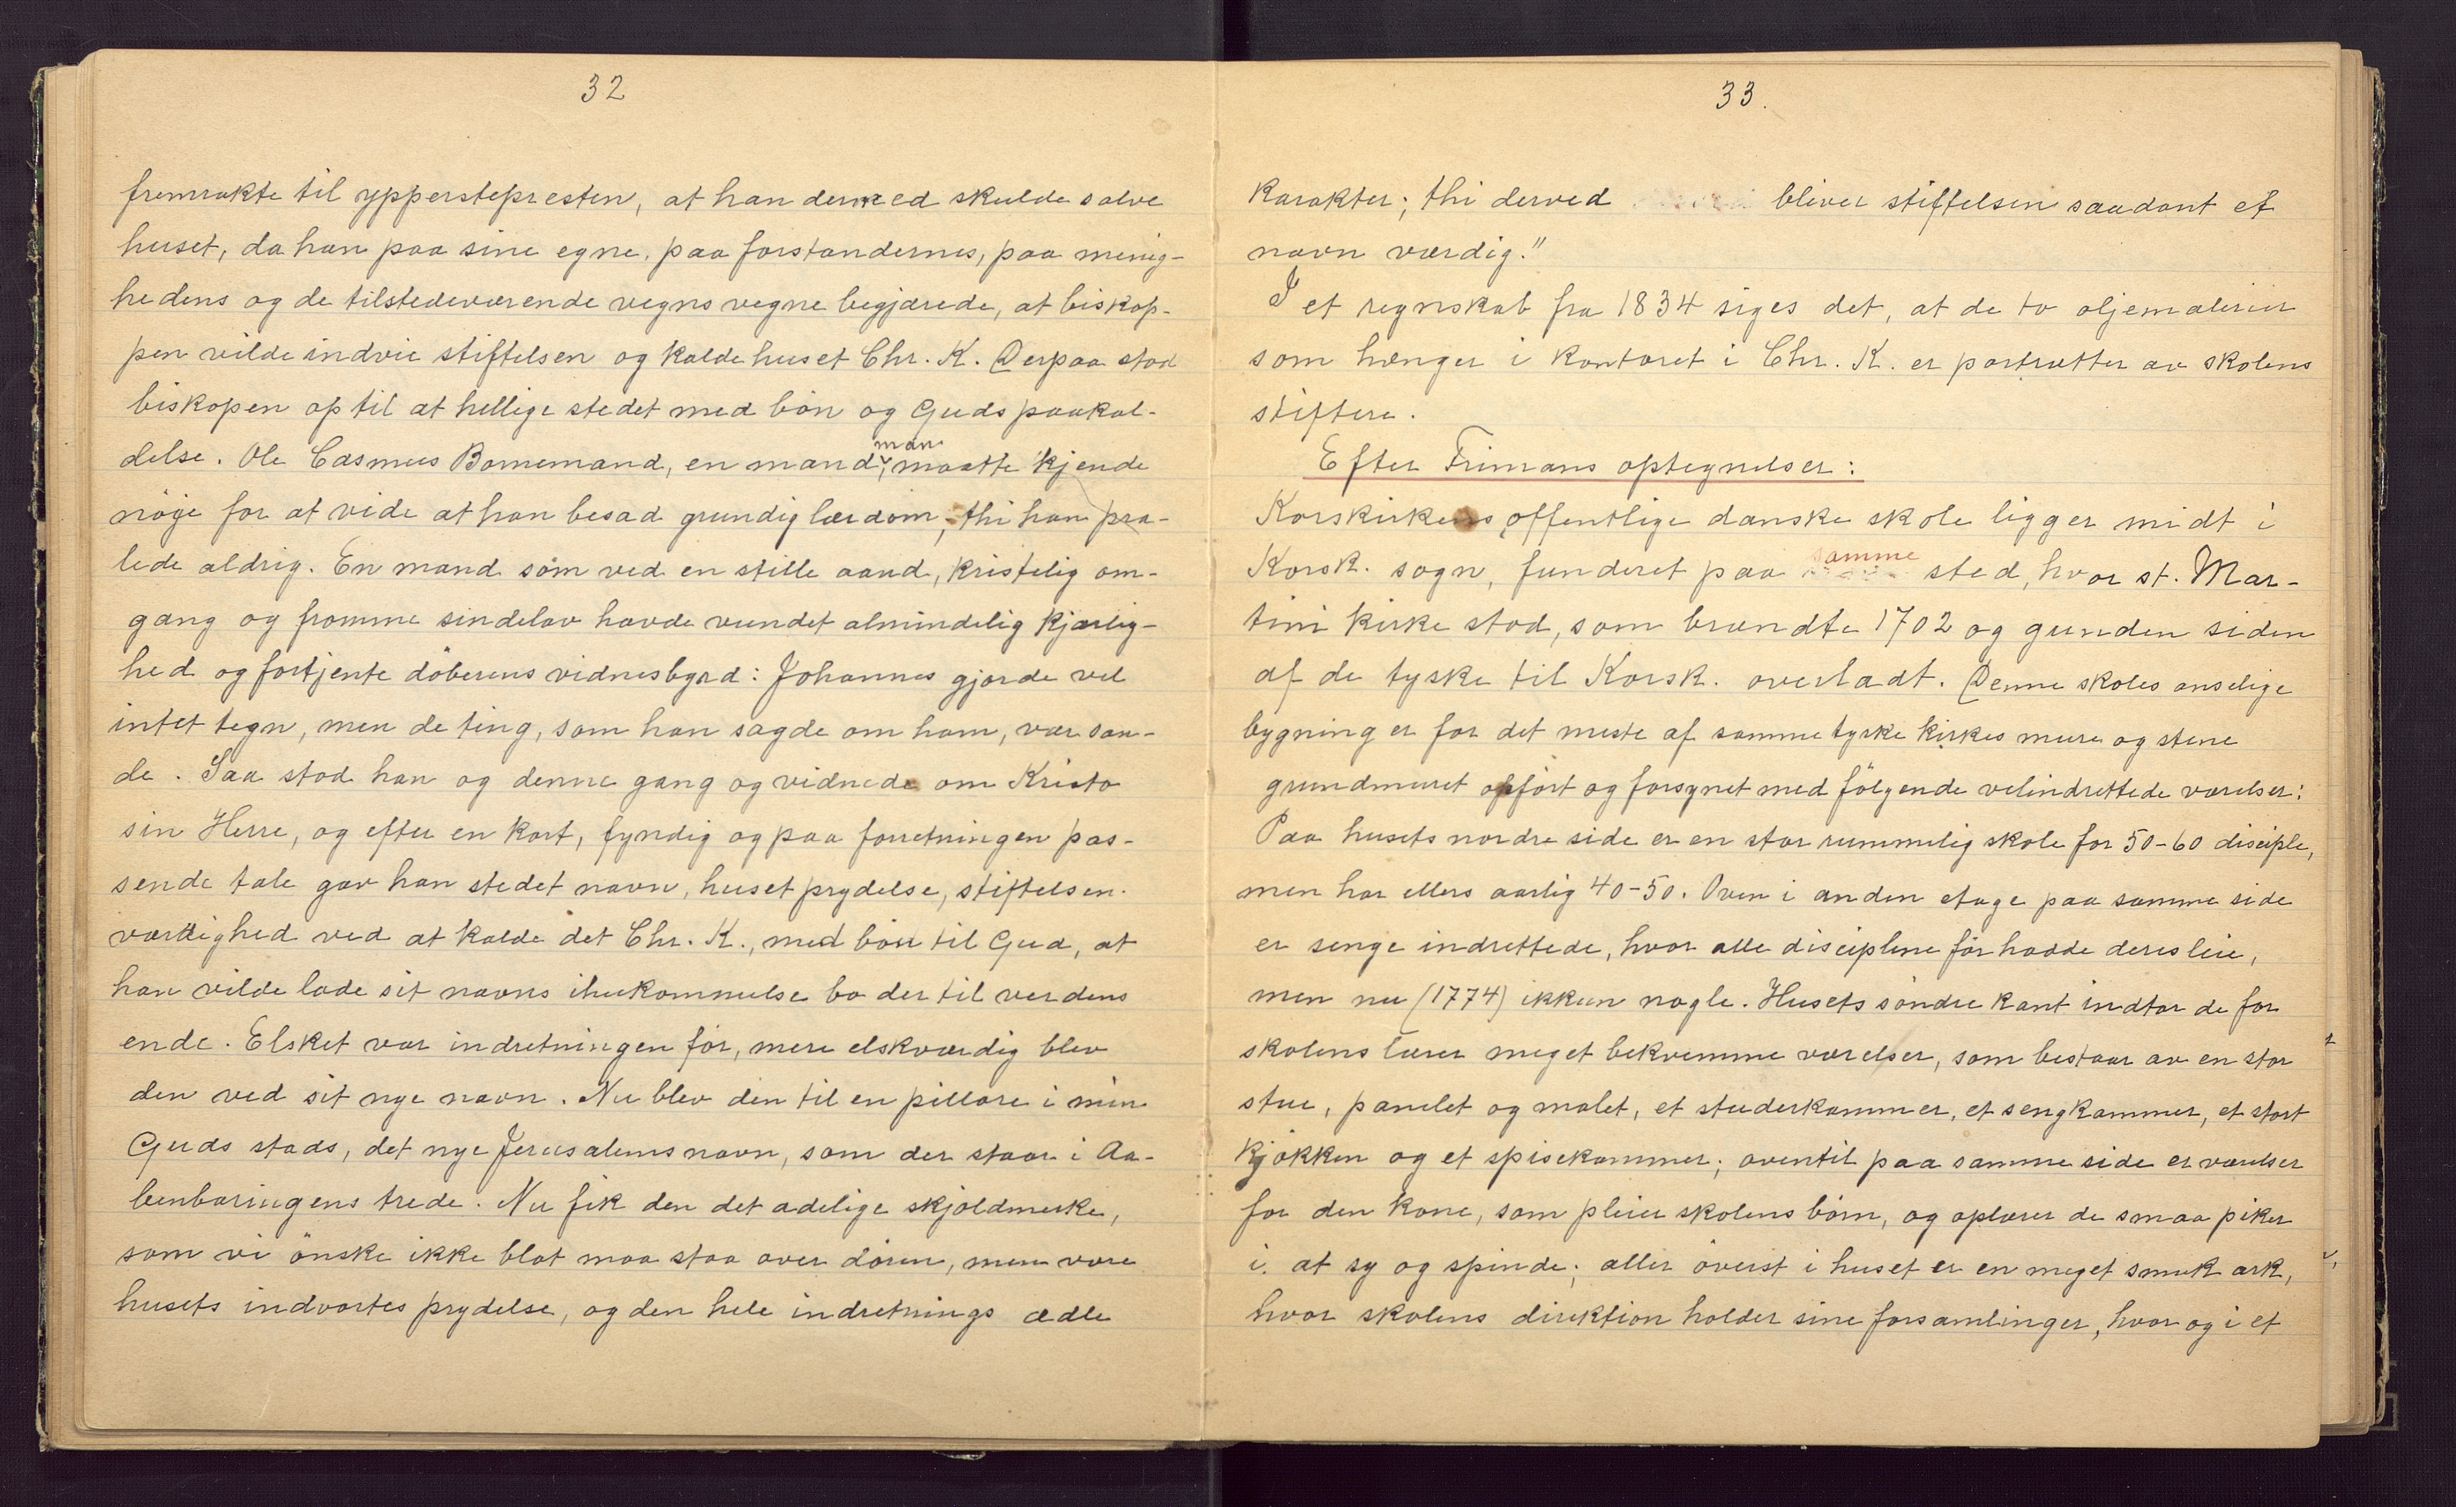 32
fremrakte til ypperstepresten, at han dermed skulde salve
huset, da han paa sine egne, paa forstandernes, paa menig-
hedens og de tilstedeværende vegns vegne begjærede, at biskop-
pen vilde indvie stiftelsen og kalde huset Chr. K. Derpaa stod
biskopen op til at hellige stedet med bön og Guds paakal-
delse. Ole Casmus Bornemand, en mand, man maatte kjende
nöje for at vide at han besad grundig lærdom, thi han pra-
lede aldrig. En mand som ved en stille aand, kristelig om-
gang og fromme sindelav havde vundet almindelig kjærlig-
hed og fortjente döberens vidnesbyrd: Johannes gjorde vel
intet tegn, men de ting, som han sagde om ham, var san-
de. Saa stod han og denne gang og vidnede om Kristo
sin Herre, og efter en kort, fyndig og paa forretningen pas-
sende tale gav han stedet navn, huset prydelse, stiftelsen
værdighed ved at kalde det Chr. K., med bön til Gud, at
han vilde lade sit navns ihukommelse bo der til verdens
ende. Elsket var indretningen för, mere elskværdig blev
den ved sit nye navn. Nu blev den til en pillare i min
Guds stads, det nye Jerusalems navn, som der staar i Aa-
benbaringens trede. Nu fik den det adelige skjoldmerke,
som vi önske ikke blot maa staa over dören, men være
husets indvortes prydelse, og den hele indretnings ædle
33.
karakter; thi derved bliver stiftelsen saadant et
navn værdig."
I et regnskab fra 1834 siges det, at de to oljemalerier
som hænger i kontoret i Chr. K. er portrætter av skolens
stiftere.
Efter Frimans optegnelser:
Korskirkens offentlige danske skole ligger midt i
Korsk. sogn, funderet paa samme sted, hvor st. Mar-
tini kirke stod, som brændte 1702 og grunden siden
af de tyske til Korsk. overladt. Denne skoles anselige
bygning er for det meste af samme tyske kirkes mure og stene
grundmuret opfört og forsynet med fölgende velindrettede værelser:
Paa husets nordre side er en stor rummelig skole for 50-60 disciple,
men har ellers aarlig 40-50. Oven i anden etage paa samme side
er senge indrettede, hvor alle disciplene för hadde deres leie,
men nu (1774) ikkun nogle. Husets söndre kant indtar de for
skolens lærer meget bekvemme værelser, som bestaar av en stor
stue, panelet og malet, et studerkammer, et sengkammer, et stort
kjökken og et spisekammer; oventil paa samme side er værelser
for den kone, som pleier skolens börn, og oplærer de smaa piker
i at sy og spinde; aller överst i huset er en meget smuk ark,
hvor skolens direktion holder sine forsamlinger, hvor og i et